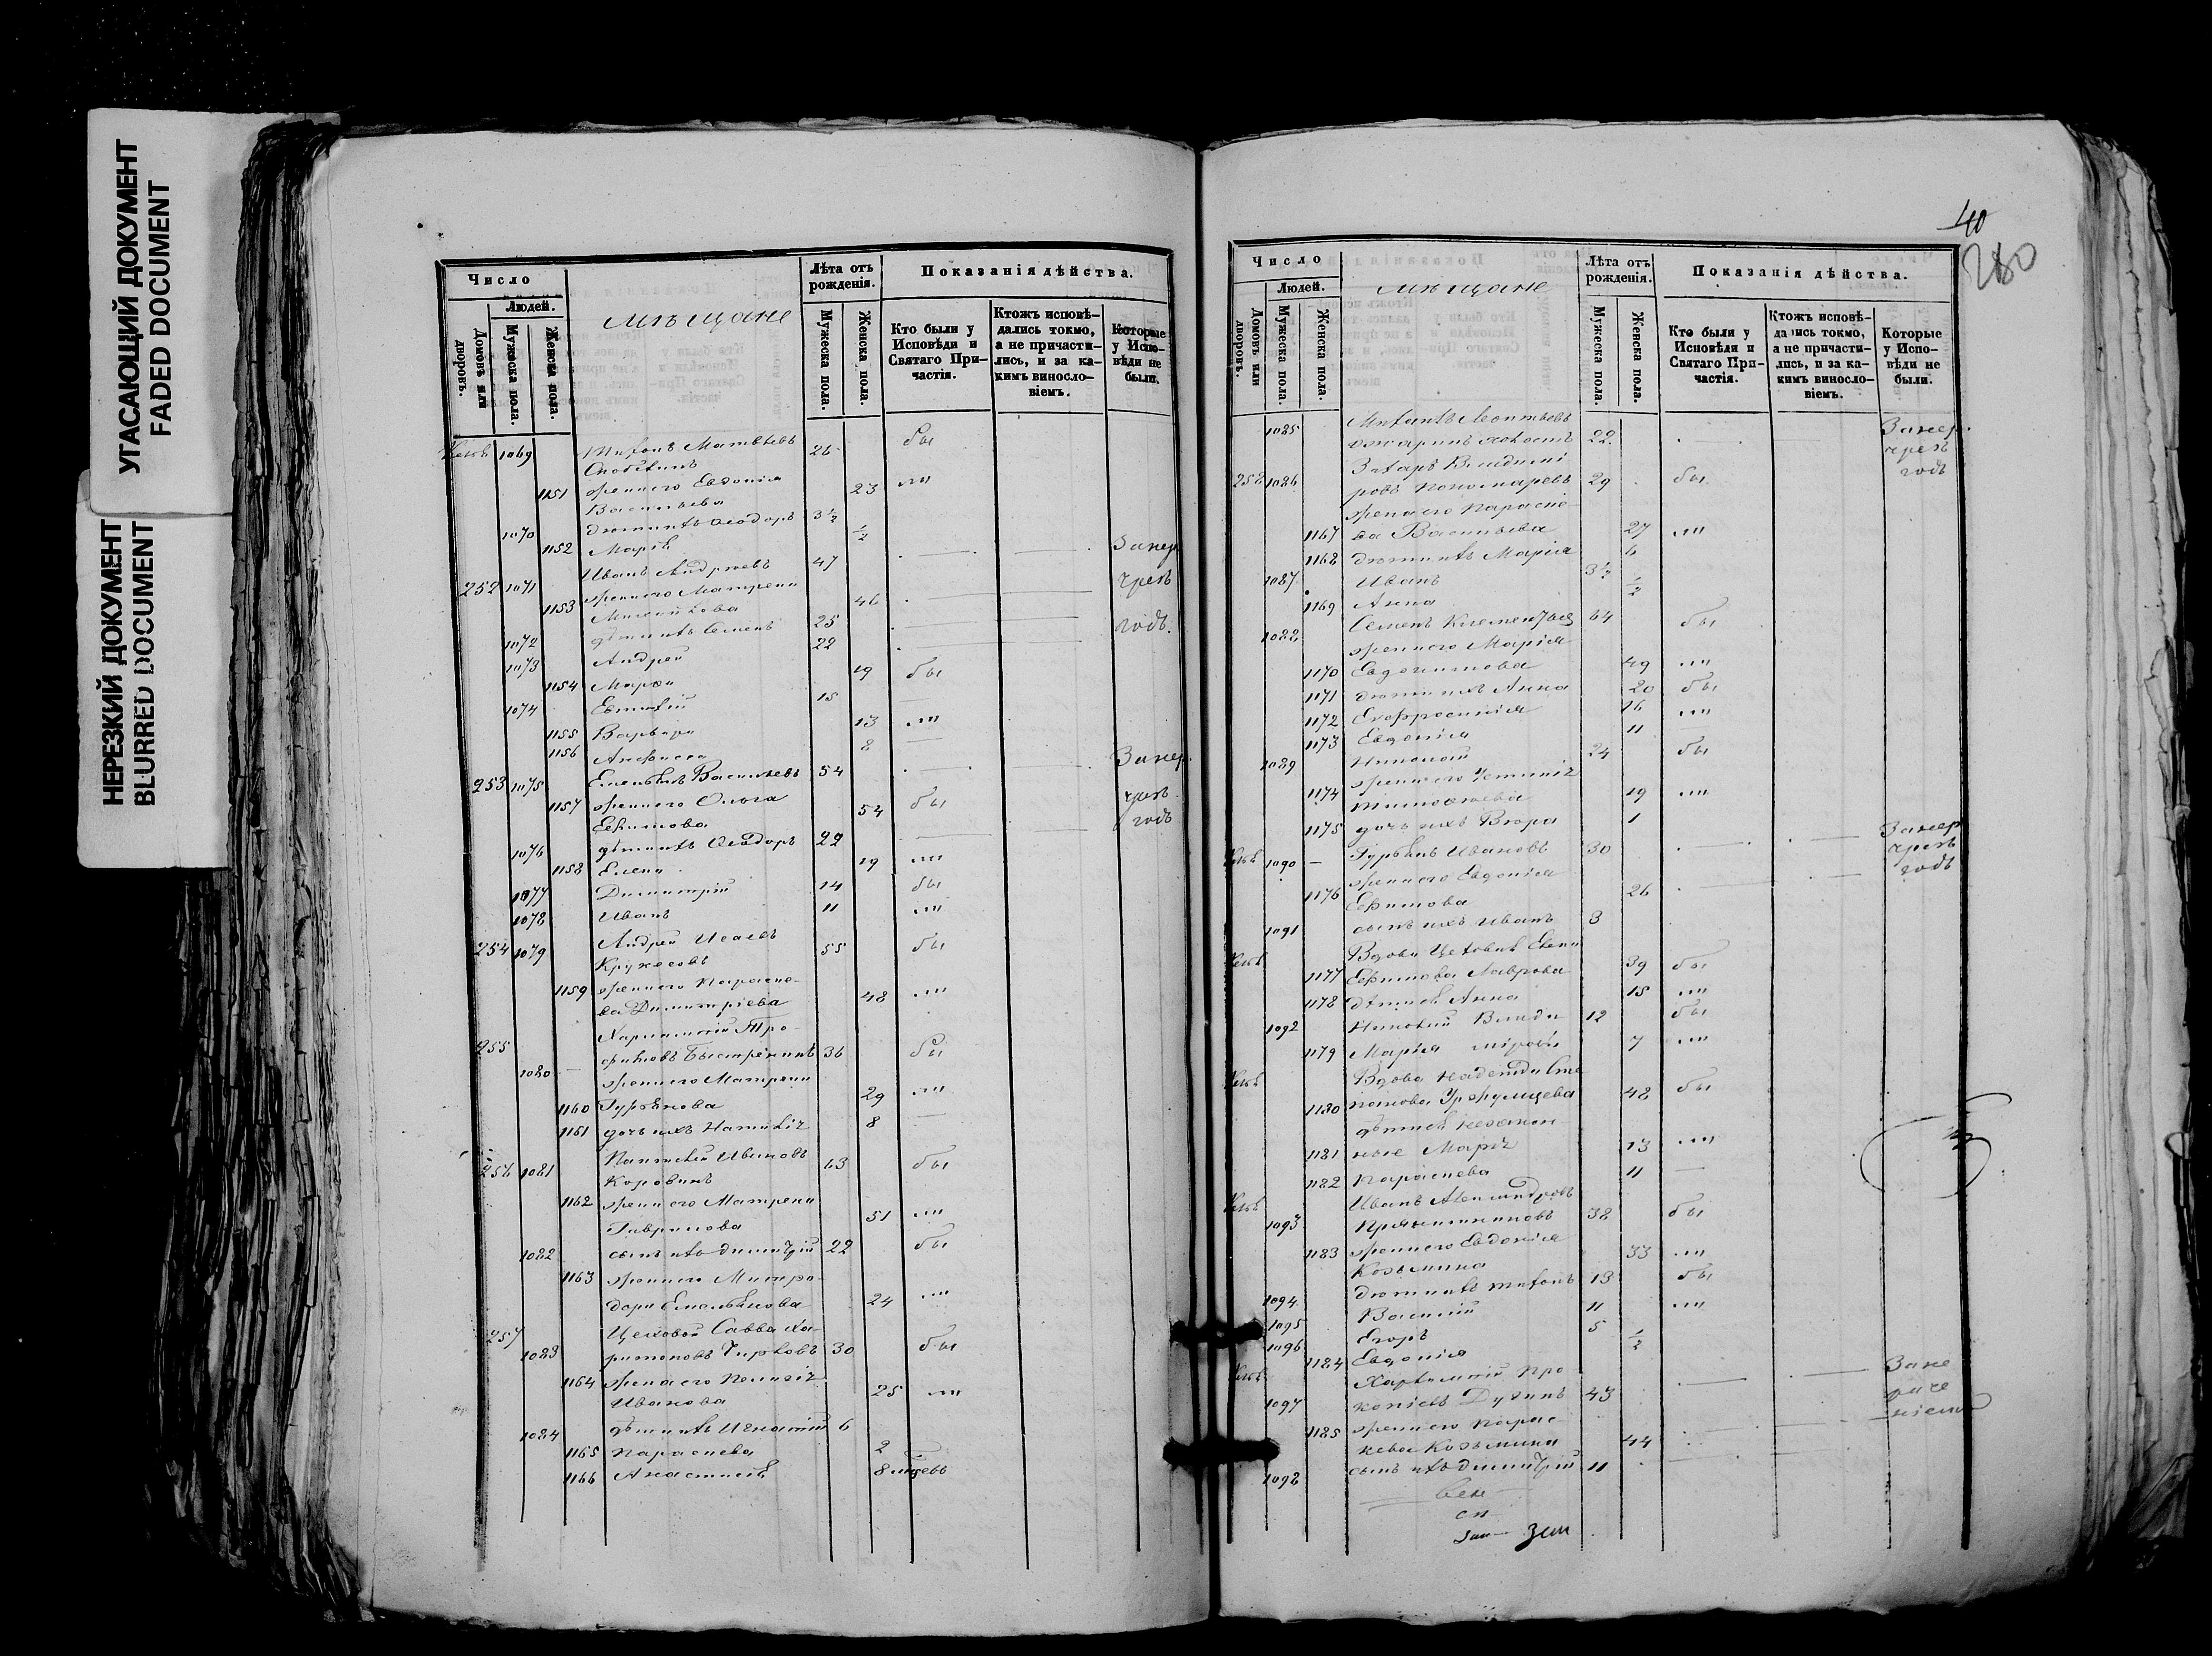 УГАСАЮЩИЙ ДОКУМЕНТ
FADED DOCUMENT
НЕРЕЗКИЙ ДОКУМЕНТ
BLURRED DOCUMENT
Число
Людей.
Домовъ или дворовъ.
Мужеска пола.
Женска пола.
мѣщане
Лѣта отъ рожденія.
Мужеска пола.
Женска пола.
Показанія дѣйства.
Кто были у Исповѣди и Святаго Причастія.
Ктожъ исповѣдались токмо, а не причастились, и за какимъ винословіемъ.
Которые у Исповѣди не были.
1069 Тихонъ Матвѣевъ 26 бы
1151 жена его Евдокія 23
Васильева
1070 дѣти ихъ Ѳеодоръ 3½
1152 Марія ½
252 1071 Иванъ Андреевъ 47
1153 жена его Матрена 46
чрезъ
годъ.
1072 дѣти ихъ Семенъ 25
1073 Андрей 22
1154 Марфа 19 бы
1074 Евтихій 15
1155 Варвара 13
1156 Анфисса 8
253 1075 Емельянъ Васильевъ 54
1157 жена его Ольга 54 бы
Ефимова
чрезъ
годъ
1076 дѣти ихъ Ѳеодоръ 22
1158 Елена 19
1077 Димитрій 14 бы
1078 Иванъ 11
254 1079 Андрей Исаевъ 55 бы
1159 жена его Параске-
ва Димитріева 48
255 Харлампій Тро-
1080 36 бы
жена его Матрена 29
1160 Гурьянова
1161 дочь ихъ Наталія 8
256 1081 Пантелей Ивановъ 63 бы
Коровинъ
1162 жена его Матрена
Гаврилова 51
1082 сынъ ихъ Димитрій 22 бы
1163 жена его Митро-
дора Емельянова 24
257 Цеховой Савва Ха-
1083 ритоновъ Чирковъ 30 бы
1164 жена его Пелагія 25
Иванова
1084 дѣти ихъ Игнатій 6
1165 Параскева 2
1166 Анастасія
40
280
Число
Людей.
Домовъ или дворовъ.
Мужеска пола.
Женска пола.
мѣщане
Лѣта отъ рожденія.
Мужеска пола.
Женска пола.
Показанія дѣйства.
Кто были у Исповѣди и Святаго Причастія.
Ктожъ исповѣдались токмо, а не причастились, и за какимъ винословіемъ.
Которые у Исповѣди не были.
1085 Леонтьевъ
холостъ 22
чрезъ
годъ
258 1086 Захаръ Владими-
ровъ Пономаревъ 29 бы
жена его Параске-
1167 ва Васильева 27
1168 дѣти ихъ Марія 6
1087 Иванъ 3½
1169 Анна ½
1088 Семенъ 64 бы
жена его Марія
1170 Евдокимова 49
1171 дѣти ихъ Анна 20 бы
1172 Евфросинія 16
1173 Евдокія 11
1089 Николай 24 бы
1174 жена его Устинія
Тимоѳеева 19
1175 дочь ихъ Вѣра 1
1090 Гурьянъ Ивановъ 30
чрезъ
годъ
жена его Евдокія
1176 Ефимова 26
1091 сынъ ихъ Иванъ 3
Вдова
1177 Ефимова Лаврова 39 бы
1178 Анна 15
1092 Николай Влади- 12 бы
1179 Марія міровы 7
Вдова Надежда Сте
1180 панова 48 бы
дѣти ея незакон
1181 ные Марія 13
1182 Параскева 11
Иванъ Александровъ
1093 Прянишниковъ 38 бы
1183 жена его Евдокія 33
Козьмина
1094 дѣти ихъ Тихонъ 13 бы
1095 Василій 11
1096 Егоръ 5
1184 Евдокія ½
Харлампій Про-
1097 копіевъ 43
1185 жена его Парас
кева Козьмина 44
1098 сынъ ихъ Димитрій 11